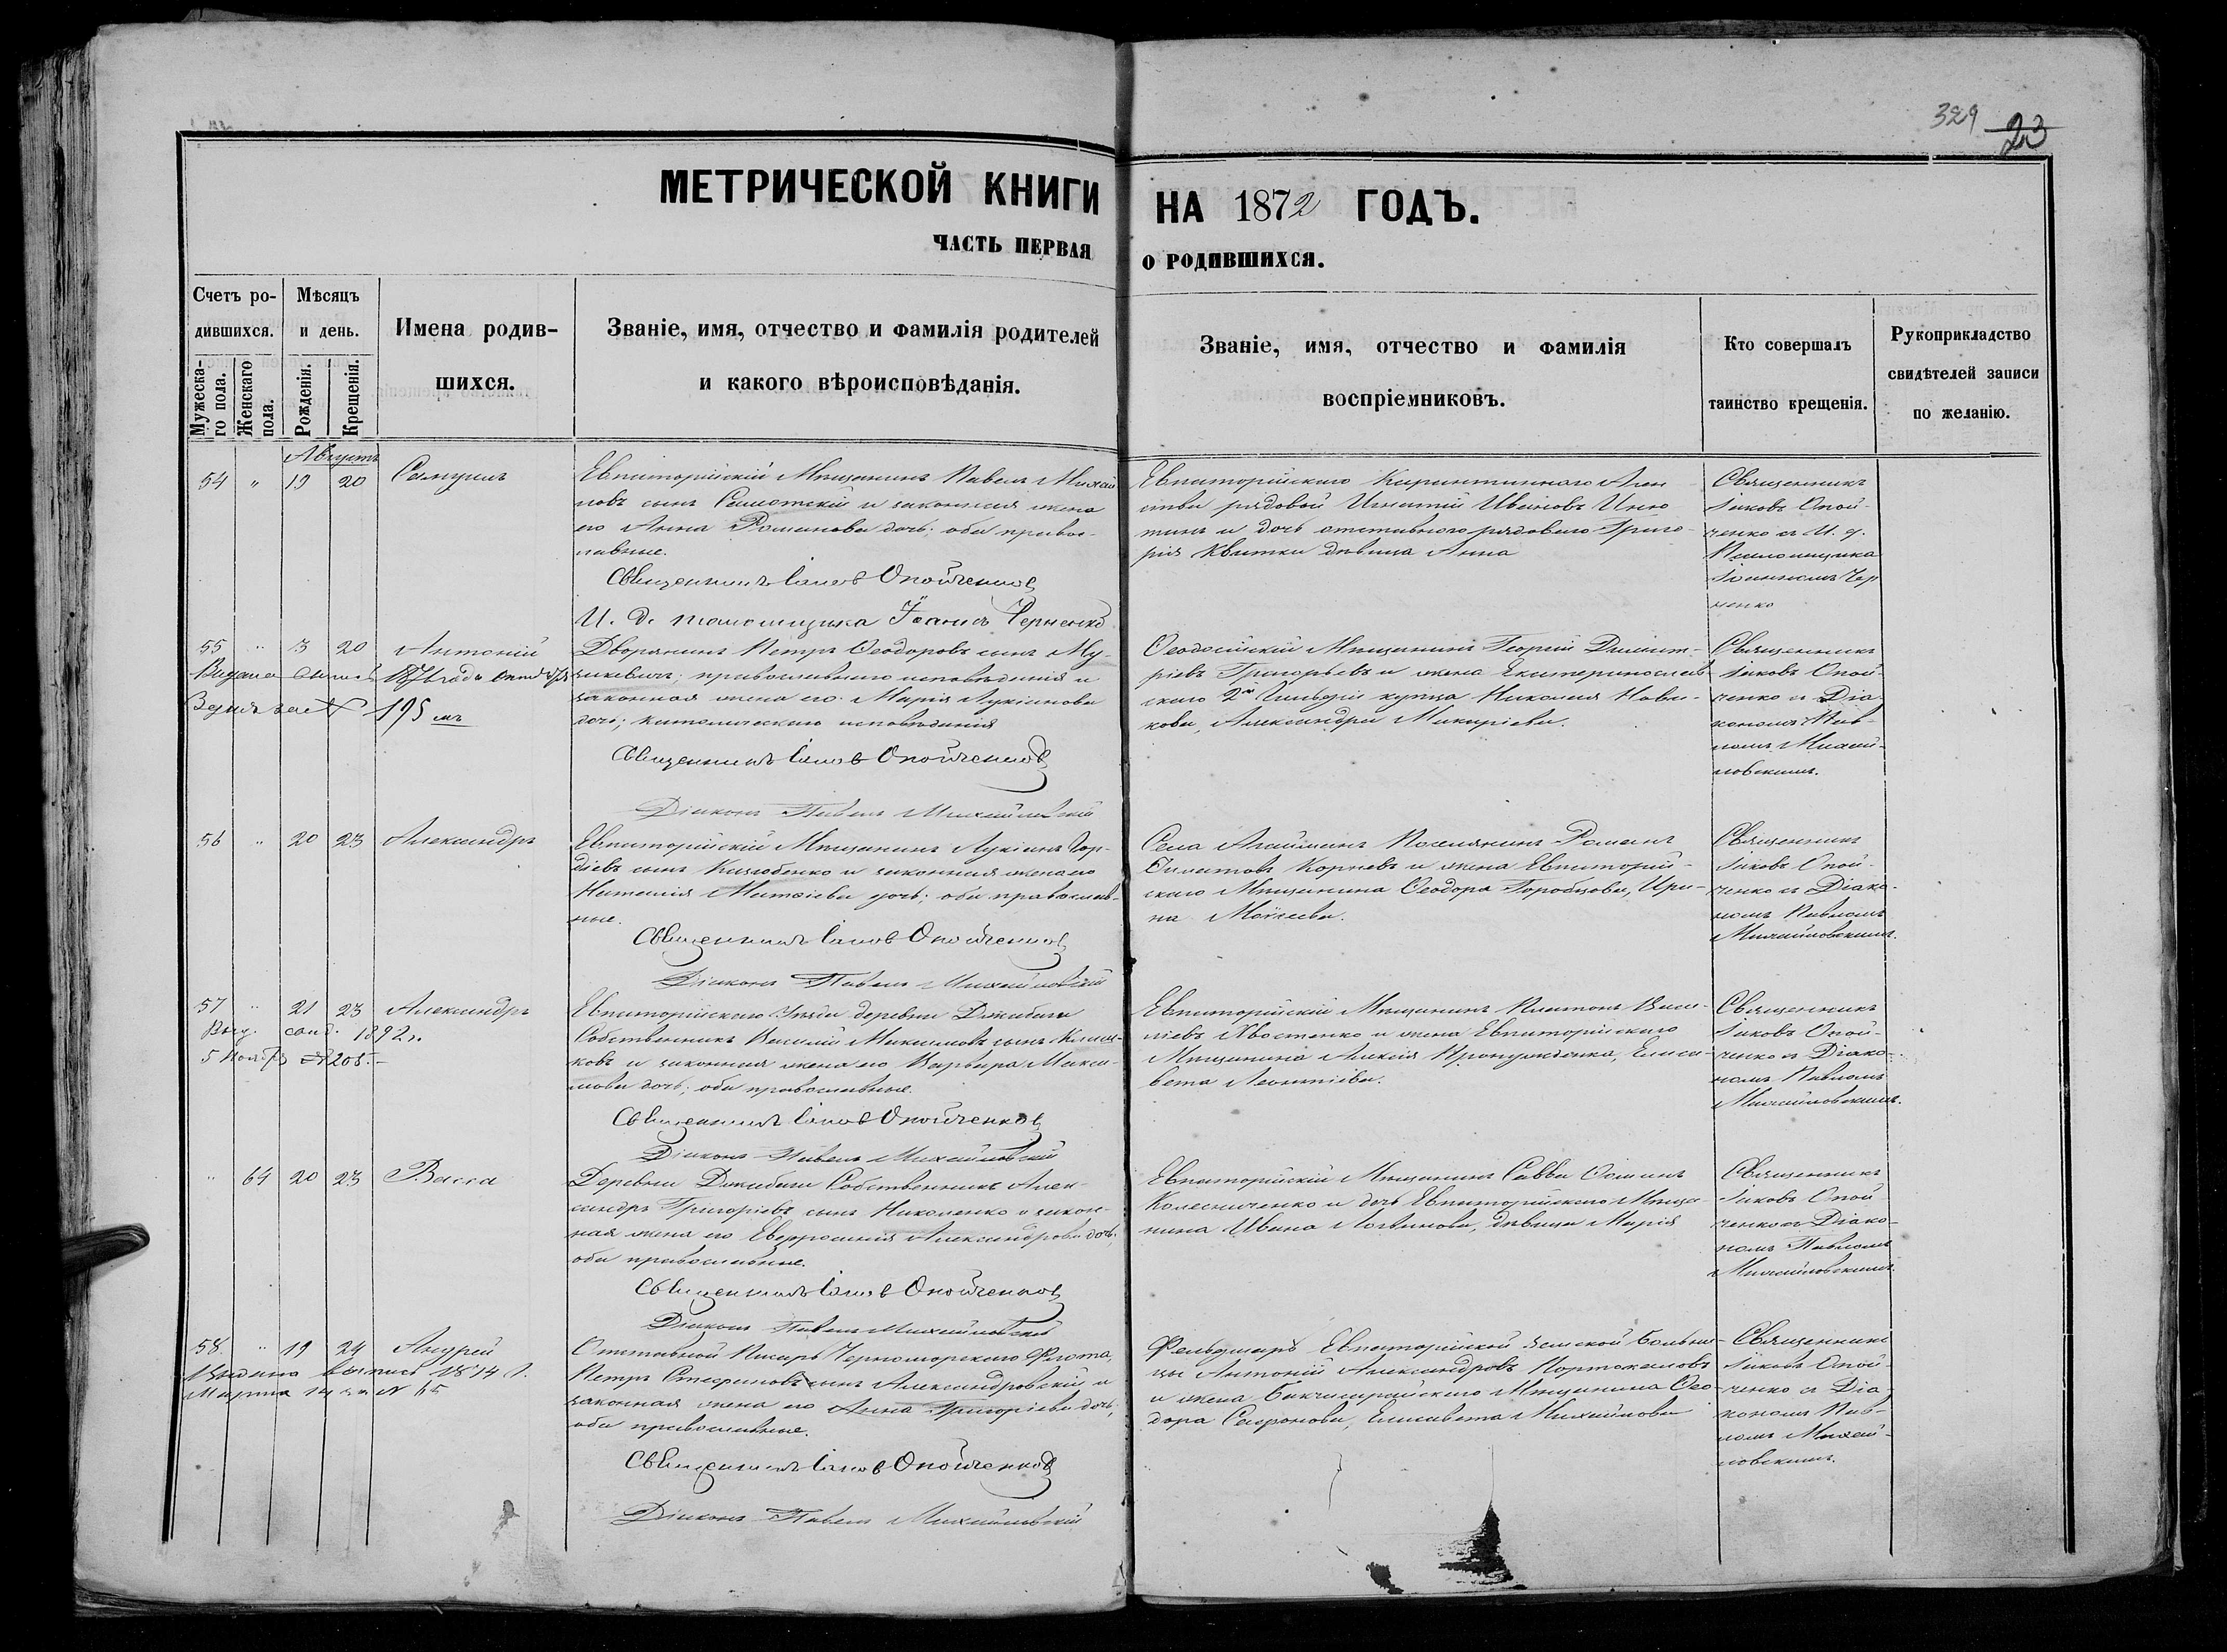 329 23
МЕТРИЧЕСКОЙ КНИГИ НА 1872 ГОДЪ.
ЧАСТЬ ПЕРВАЯ О РОДИВШИХСЯ.
Счетъ родившихся.
Мужескаго пола.
Женскаго пола.
Мѣсяцъ и день.
Рожденія.
Крещенія.
Имена родившихся.
Званіе, имя, отчество и фамилія родителей
и какого вѣроисповѣданія.
Званіе, имя, отчество и фамилія
воспріемниковъ.
Кто совершалъ
таинство крещенія.
Рукоприкладство
свидѣтелей записи
по желанію.
Августъ
54 " 19 20 Самуилъ
Евпаторійскій Мѣщанинъ Павелъ Михай
ловъ сынъ и законная жена
его Анна Романова дочь; оба правос-
лавные.
Священникъ Іаковъ Опойченковъ
И. д. помощника Іоаннъ Черненко
Евпаторійскаго Карантиннаго Аген
ства рядовой Игнатій Ивановъ
и дочь отставнаго рядоваго Григо-
рія Квитки дѣвица Анна
Священникъ
Іаковъ Опой-
ченко съ И. д.
Помощника
Іоанномъ Чер
ненко
55 " 3 20 Антоній
Дворянинъ Петръ Ѳеодоровъ сынъ Му-
православнаго исповѣданія и
законная жена его Марія Лукіанова
дочь; католическаго исповѣданія
Священникъ Іаковъ Опойченковъ
Діаконъ Павелъ Михайловскій
195
Ѳеодосійскій Мѣщанинъ Георгій Димит-
ріевъ Григорьевъ и жена Екатеринослав-
скаго 2й Гильдіи купца Николая Нови-
кова, Александра Макаріева.
Священникъ
Іаковъ Опой-
ченко съ Діа-
кономъ Пав-
ломъ Михай-
ловскимъ.
56 " 20 23 Александръ
Евпаторійскій Мѣщанинъ Лукіанъ Гор-
діевъ сынъ и законная жена его
Наталія Матѳіева дочь; оба православ-
ные.
Священникъ Іаковъ Опойченковъ
Діаконъ Павелъ Михайловскій
Села Поселянинъ Романъ
Корнѣевъ и жена Евпаторій-
скаго Мѣщанина Ѳеодора Горобцова, Ири-
на Моѵсеева.
Священникъ
Іаковъ Опой-
ченко съ Діако-
номъ Павломъ
Михайловскимъ.
57 " 21 23 Александръ
1892 г.
5 Ноября № 205.
Евпаторійскаго Уѣзда деревни
Собственникъ Василій Максимовъ сынъ
ковъ и законная жена его Варвара Макси-
мова дочь; оба православные.
Священникъ Іаковъ Опойченковъ
Діаконъ Павелъ Михайловскій
Евпаторійскій Мѣщанинъ Платонъ Васи-
ліевъ Хвостенко и жена Евпаторійскаго
Мѣщанина Алексія Елиса-
вета Леонтіева.
Священникъ
Іаковъ Опой-
ченко съ Діако-
номъ Павломъ
Михайловскимъ.
" 64 20 23 Васса
Деревни Собственникъ Алек-
сандръ Григорьевъ сынъ Николенко и закон-
ная жена его Евфросинія Александрова дочь;
оба православные.
Священникъ Іаковъ Опойченковъ
Діаконъ Павелъ Михайловскій
Евпаторійскій Мѣщанинъ Савва
Колесниченко и дочь Евпаторійскаго Мѣща-
нина Ивана Логвинова, дѣвица Марія
Священникъ
Іаковъ Опой
ченко съ Діако-
номъ Павломъ
Михайловскимъ.
58. " 19 24 Андрей
Выдано 1874 г.
Марта 14 за № 65
Отставной Писарь Черноморскаго Флота,
Петръ Стефановъ сынъ Александровскій и
законная жена его Анна Григоріева дочь;
оба православные.
Священникъ Іаковъ Опойченковъ
Діаконъ Павелъ Михайловскій
Фельдшеръ Евпаторійской земской больни-
цы Антоній Александровъ Портокаловъ
и жена Бахчисарайскаго Мѣщанина Ѳео-
дора Сафонова, Елисавета Михайлова
Священникъ
Іаковъ Опой-
ченко съ Діа-
кономъ Пав-
ломъ Михай-
ловскимъ.